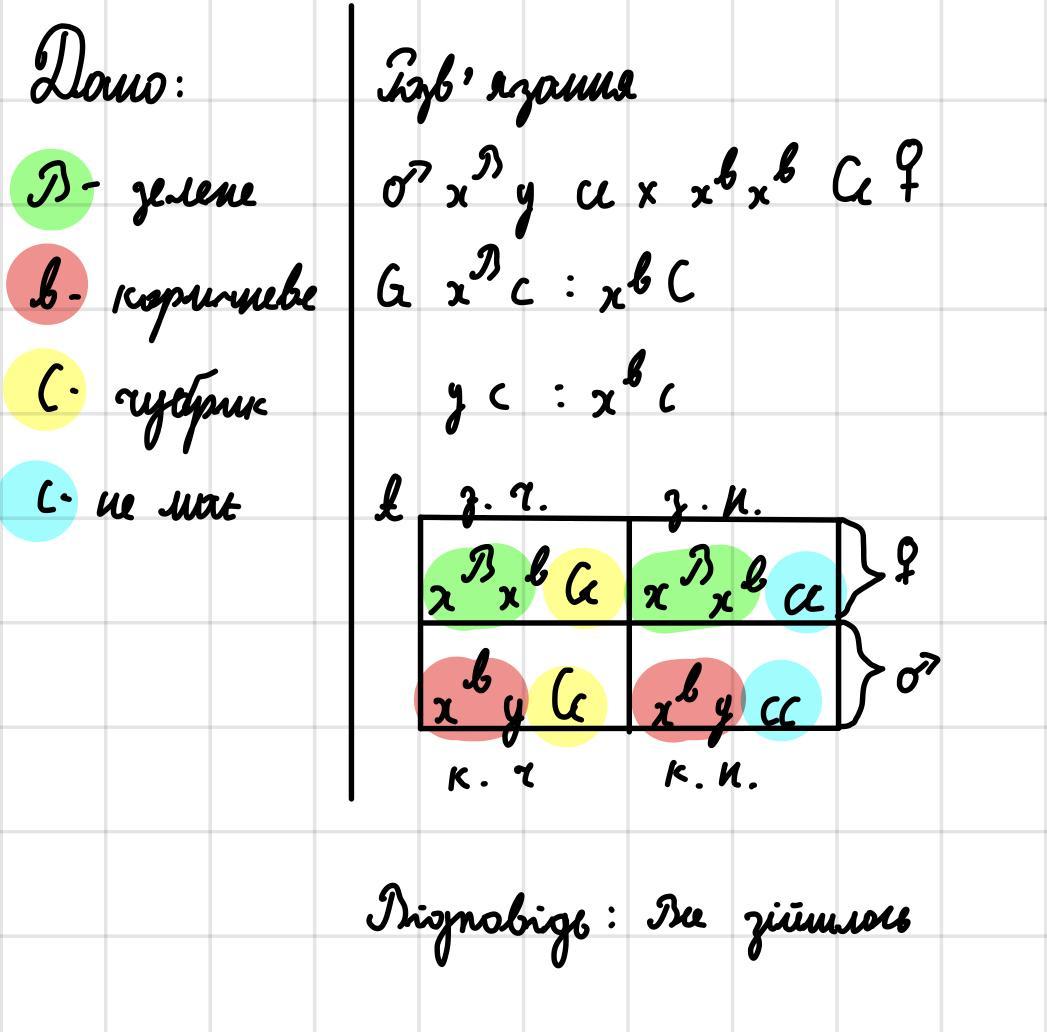 Дано:
В - зелене
в - коричневе
С - чубчик
с - не має
Розв'язання
♂ xᴮ y cc x xᵇxᵇ Cc ♀
G xᴮ c : xᵇ C
y c : xᵇ c
з. ч. з. н.
xᴮxᵇ Cc xᴮxᵇ cc ♀
xᵇy Cc xᵇy cc ♂
к. ч к. н.
Відповідь: Все зійшлось